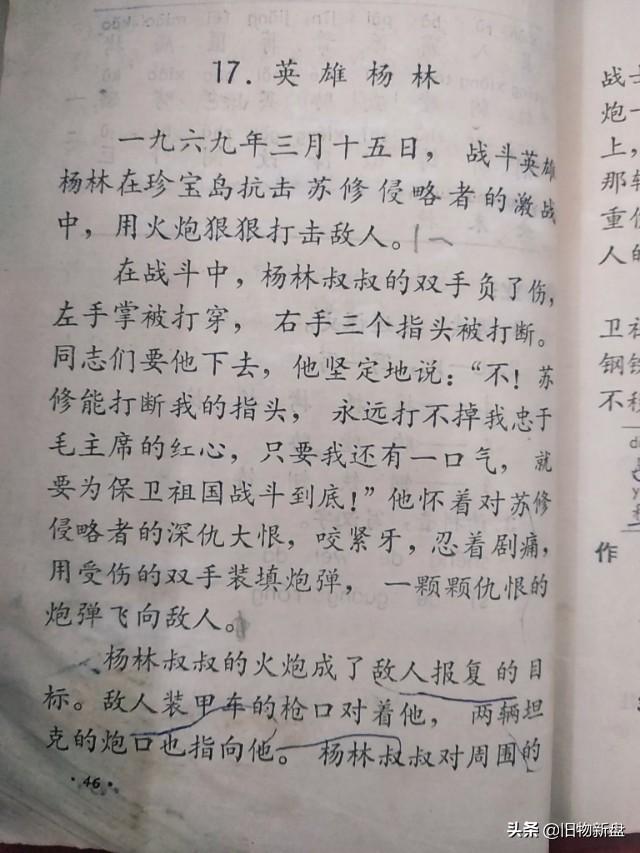 17. 英雄杨林
一九六九年三月十五日，战斗英雄
杨林在珍宝岛抗击苏修侵略者的激战
中，用火炮狠狠打击敌人。
在战斗中，杨林叔叔的双手负了伤，
左手掌被打穿，右手三个指头被打断。
同志们要他下去，他坚定地说：“不！苏
修能打断我的指头，永远打不掉我忠于
毛主席的红心，只要我还有一口气，就
要为保卫祖国战斗到底！”他怀着对苏修
侵略者的深仇大恨，咬紧牙，忍着剧痛，
用受伤的双手装填炮弹，一颗颗仇恨的
炮弹飞向敌人。
杨林叔叔的火炮成了敌人报复的目
标。敌人装甲车的枪口对着他，两辆坦
克的炮口也指向他。杨林叔叔对周围的
·46·
战士
炮一
上，
那辆
重伤
人的
卫祖
钢铁
不
作
头条 @旧物新盘